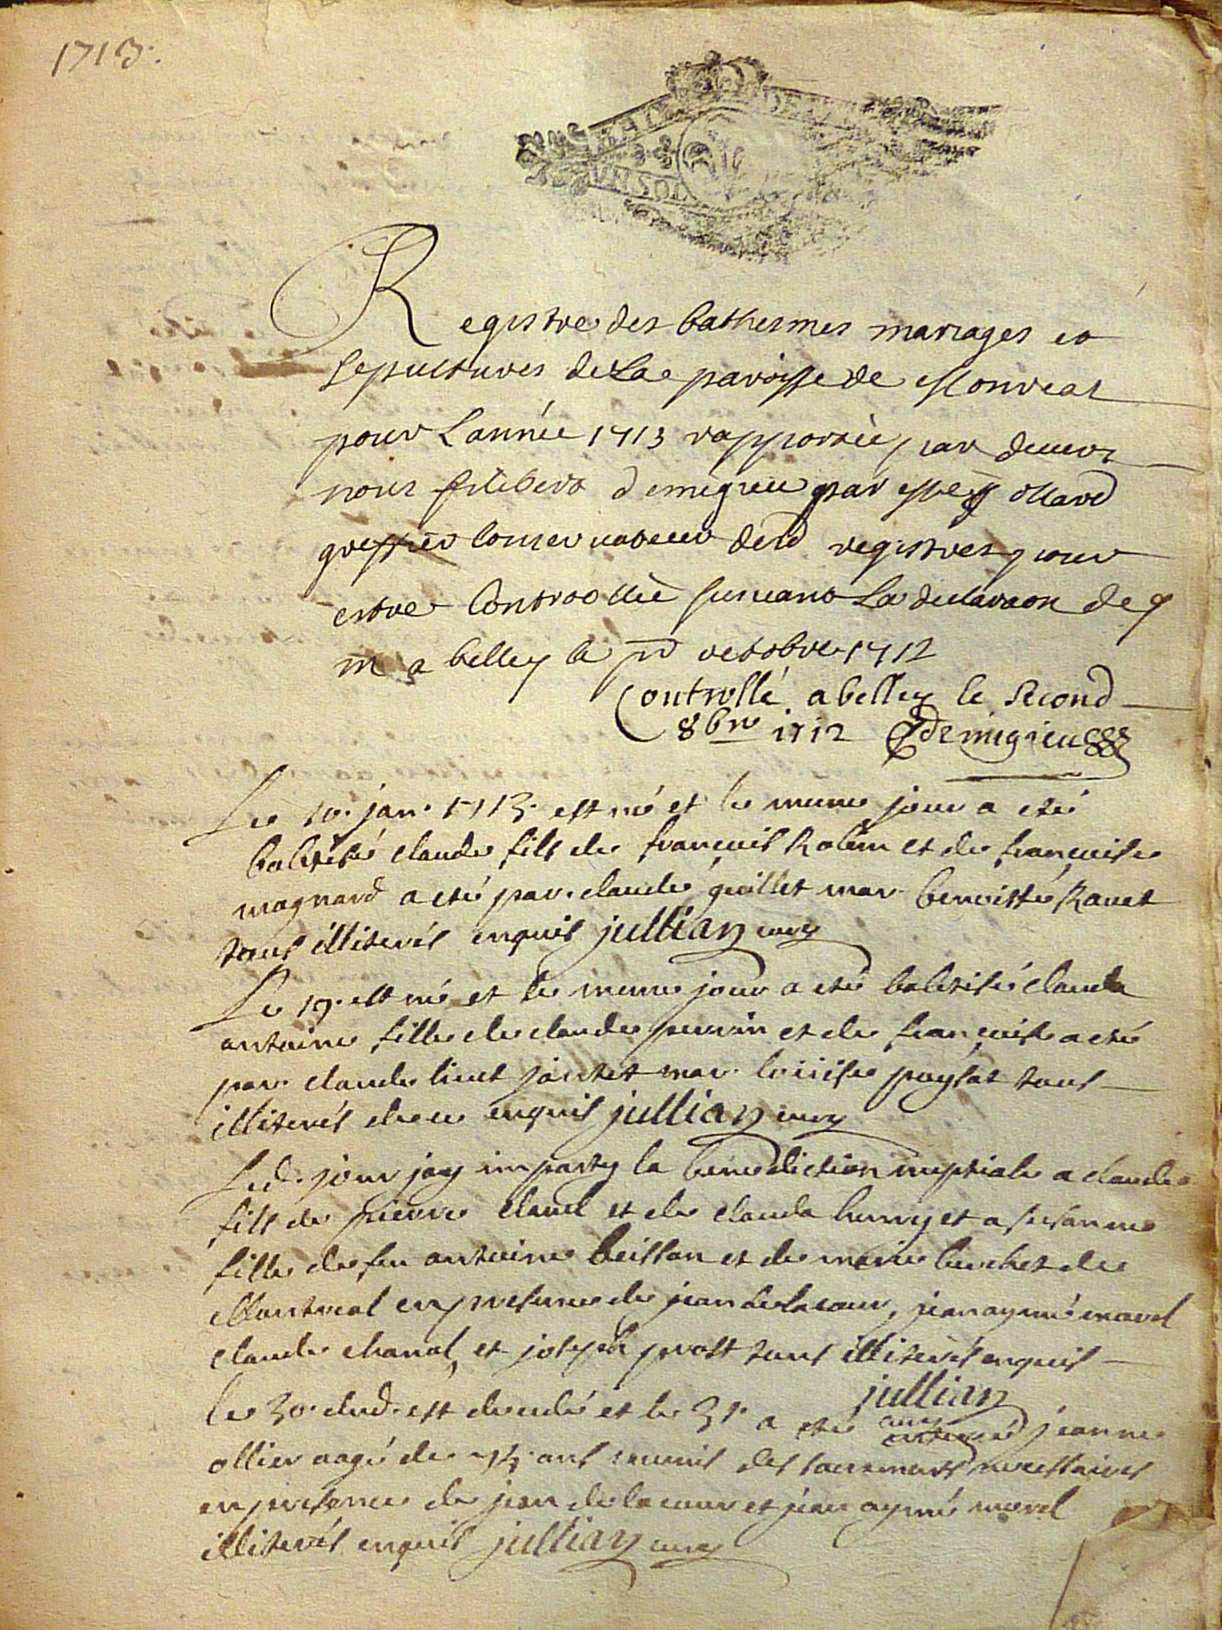 1713.
UN SOL
Registre des bathesmes mariages et
sepultures de La paroisse de Monreal
pour Lannée 1713 rapportée par devers
nous filibert demigieu par Mre ollard
greffier Conservateur desd registres pour
estre Controollée suivant La declaraon de
a belley le octobre 1712
Controllé a belley le second
8bre 1712 demigieu
Le 10. jan. 1713. est né et le meme jour a eté
babtisé claude fils de françois Robin et de françoise
magnard a eté par. claude guillet mar. benoitte Ravet
tous illiterés enquis jullian curé
Le 19. est né et le meme jour a eté babtisé clauda
antoine fille de claude perrin et de françoise a eté
par. claude mar. louise paysat tous
illiterés de ce enquis jullian curé
Led. jour jay imparty la benediction nuptiale a claude
fils de pierre claud et de clauda et a susanne
fille de feu antoine buisson et de marie buchet de
Montreal en presence de jean delacour, jean aymé morel
claude chanal et joseph prost tous illiterés enquis
jullian
curé
le 30. dud. est decedé et le 31. a eté enterré jeanne
ollier aagé de ans munis des sacrements necessaires
en presence de jean de lacour et jean aymé morel
illiterés enquis jullian curé